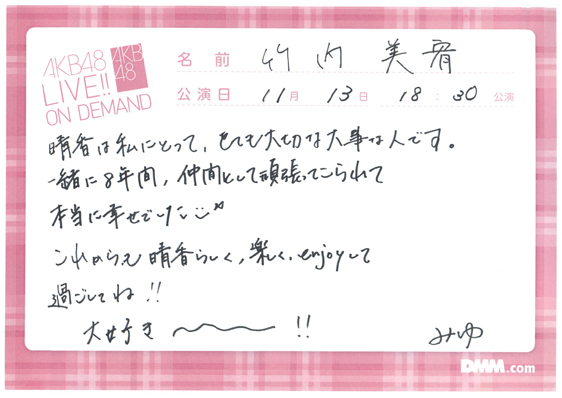 AKB48
LIVE!!
ON DEMAND
AKB
48
名前 竹内 美宥
公演日 11月 13日 18:30 公演
晴香は私にとって、とても大切な大事な人です。
一緒に8年間、仲間として頑張ってこられて
本当に幸せでした
これからも晴香らしく、楽しく、enjoyして
過ごしてね!!
大好き〜!!
みゆ
DMM.com